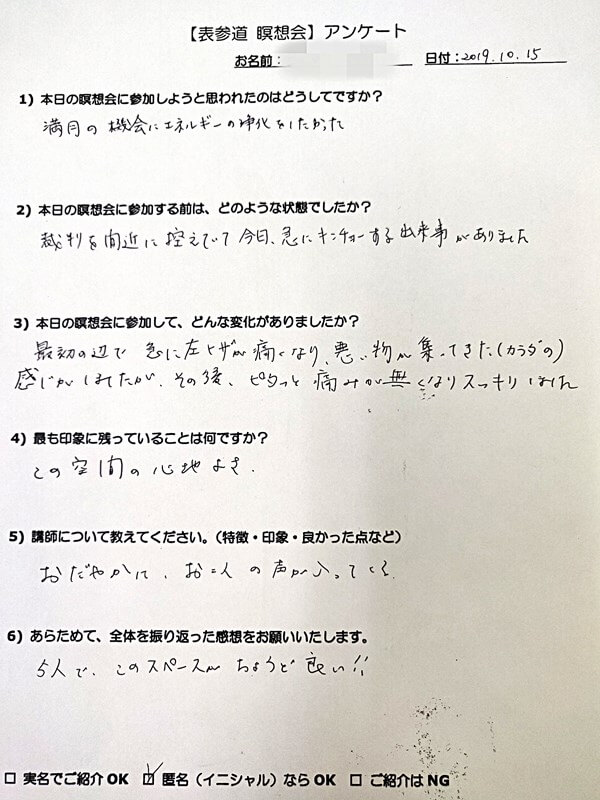 【表参道 瞑想会】アンケート
お名前： 日付：2019.10.15
1）本日の瞑想会に参加しようと思われたのはどうしてですか？
満月の機会にエネルギーの浄化をしたかった
2）本日の瞑想会に参加する前は、どのような状態でしたか？
裁判を間近に控えていて今日、急にキンチョーする出来事がありました
3）本日の瞑想会に参加して、どんな変化がありましたか？
最初の辺で 急に左ヒザが痛くなり、悪い物が集ってきた(カラダの)
感じがしましたが、その後、ピタっと痛みが無くなりスッキリしました
4）最も印象に残っていることは何ですか？
この空間の心地よさ.
5）講師について教えてください。（特徴・印象・良かった点など）
おだやかに、お二人の声が入ってくる.
6）あらためて、全体を振り返った感想をお願いいたします。
5人で、このスペースがちょうど良い!!
□ 実名でご紹介OK ☑ 匿名（イニシャル）ならOK □ ご紹介はNG